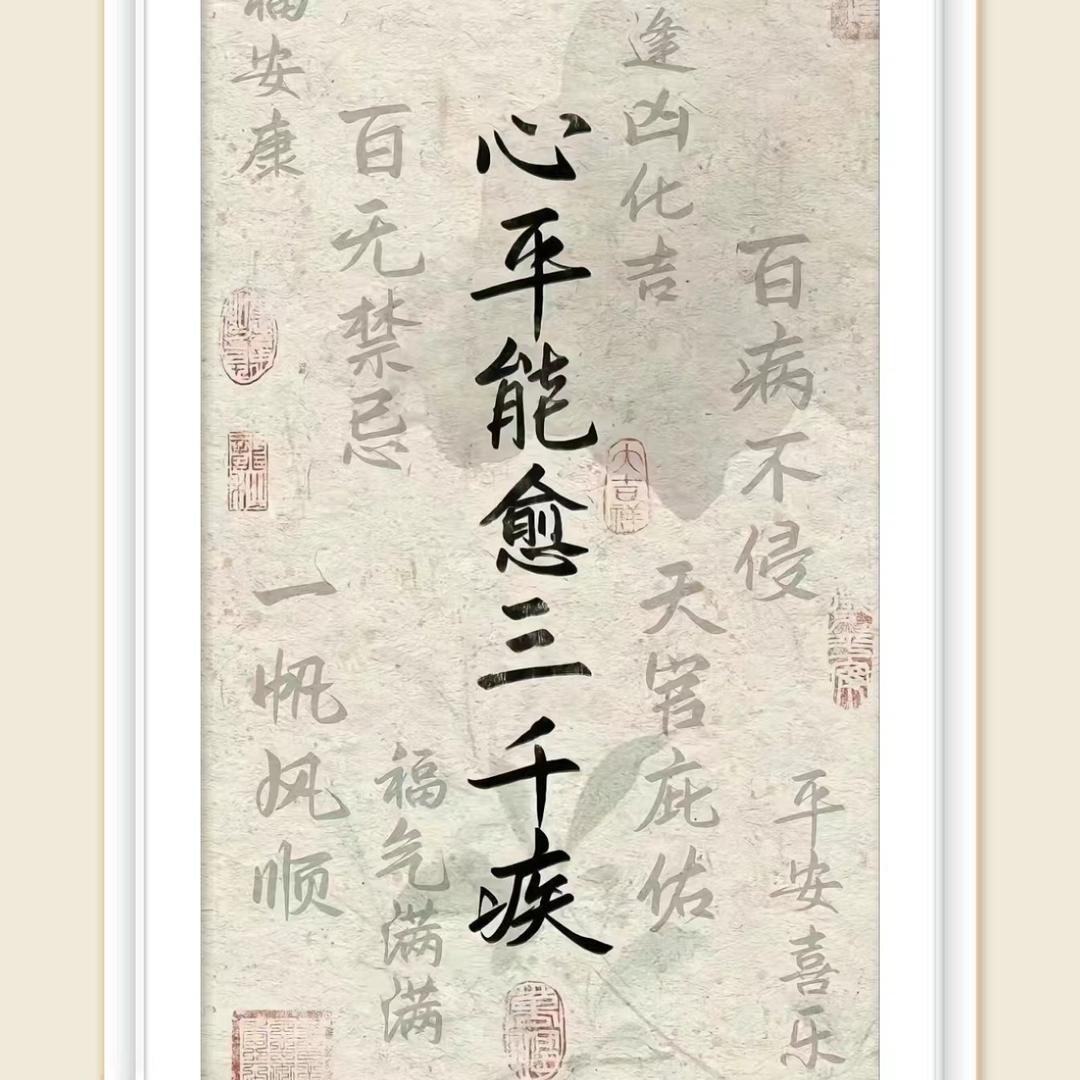 心平能愈三千疾
百病不侵
平安喜乐
逢凶化吉
天官庇佑
大吉祥
百无禁忌
福气满满
福安康
一帆风顺